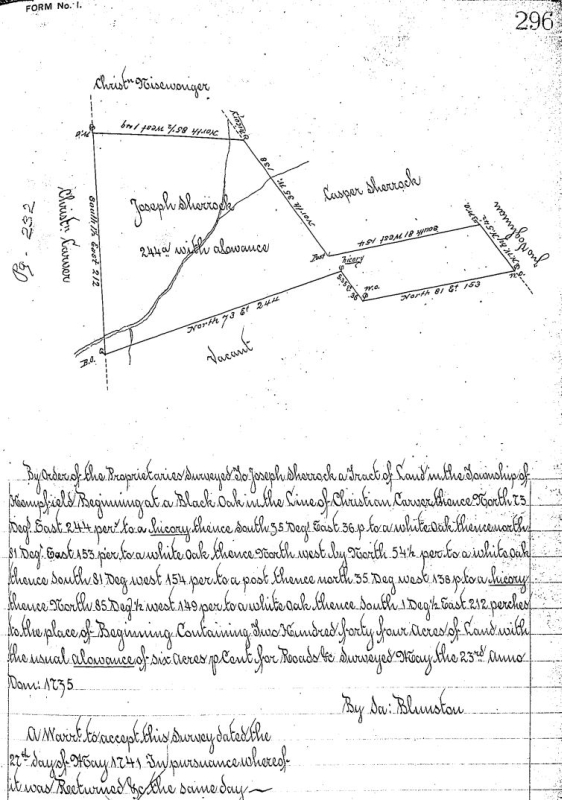 FORM No. 1.
296
Christn Nisewonger
North 85 1/2 West 149
hicory
W.O
South 1 1/2 East 212
Christn Carver
Pg - 232
Joseph Sherrock
244a with alowance
North 35 W. 138
Casper Sherrock
South 81 West 154
Post
hicory
W.O.
North 81 Et 153
North 73 Et 244
B.O.
Vacant
By Order of the Proprietaries Surveyed To Joseph Sherrock a Tract of Land in the Township of
Hempfield Beginning at a Black Oak in the Line of Christian Carver thence North 73
Degs East 244 pers to a hicory thence South 35 Degs East 36 p to a white Oak thence north
81 Degs East 153 per, to a white Oak thence North west by North 54 1/2 per, to a white Oak
thence South 81 Deg west 154 per to a post thence north 35 Deg west 138 p to a hicory
thence North 85 Deg 1/2 west 149 per to a white Oak thence South 1 Deg 1/2 East 212 perches
to the place of Beginning Containing Two Hundred forty four Acres of Land with
the usual allowance of six Acres p Cent for Roads &c Surveyed May the 23rd Anno
Dom: 1735
By Sa: Blunston
A Warrt to accept this Survey dated the
27th day of May 1741 In pursuance whereof
it was Returned &c the same day